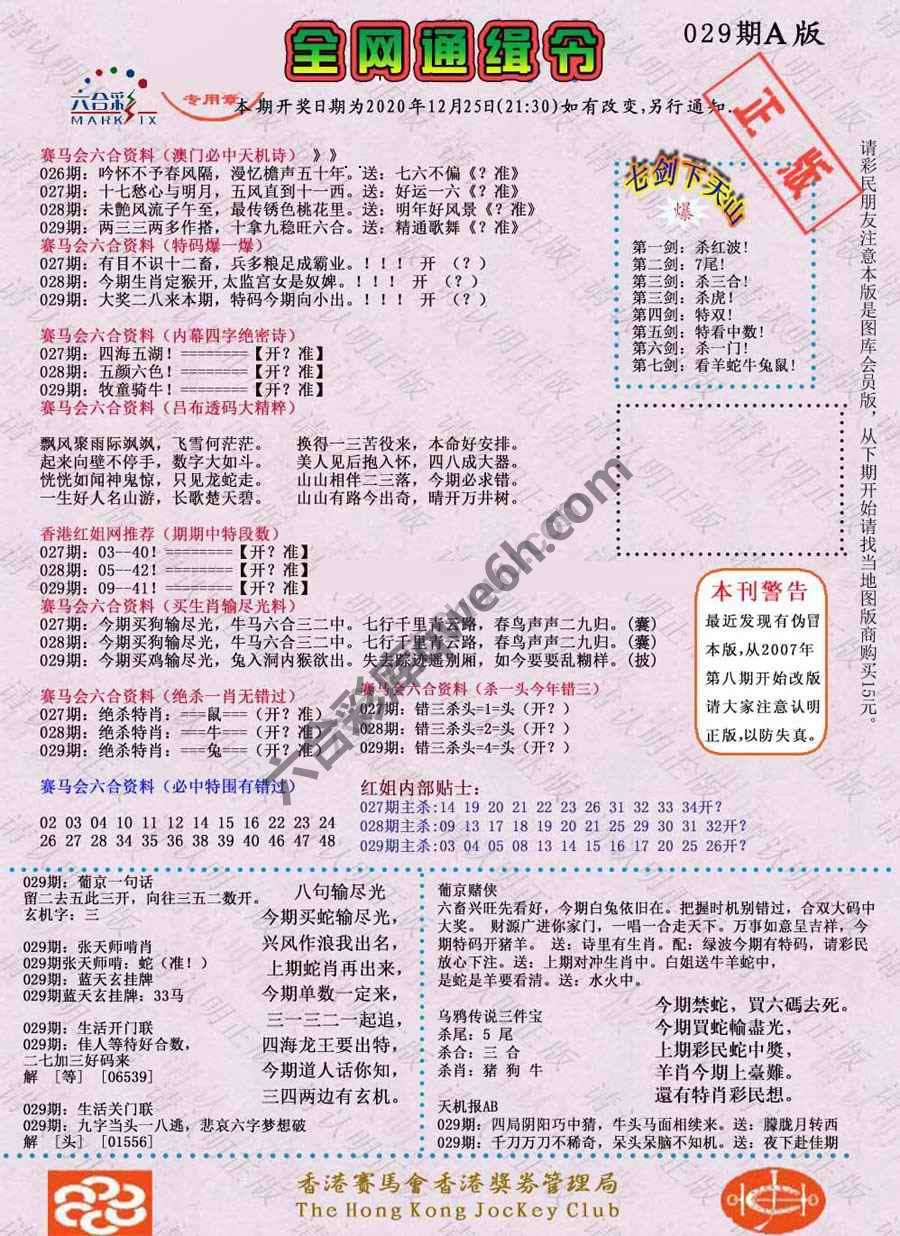 全网通缉令
029期A版
六合彩
MARK SIX
专用章
本期开奖日期为2020年12月25日(21:30)如有改变,另行通知.
正版
赛马会六合资料（澳门必中天机诗）》》
026期: 吟怀不予春风隔, 漫忆檐声五十年. 送: 七六不偏《？准》
027期: 十七愁心与明月, 五风直到十一西。送: 好运一六《？准》
028期: 未艶风流子午至, 最传锈色桃花里。送: 明年好风景《？准》
029期: 两三三两多作搭, 十拿九稳旺六合。送: 精通歌舞《？准》
赛马会六合资料（特码爆一爆）
027期: 有目不识十二畜, 兵多粮足成霸业。！！！ 开 （？）
028期: 今期生肖定猴开,太监宫女是奴婢。！！！ 开 （？）
029期: 大奖二八来本期, 特码今期向小出。！！！ 开 （？）
赛马会六合资料（内幕四字绝密诗）
027期: 四海五湖！========【开？准】
028期: 五颜六色！========【开？准】
029期: 牧童骑牛！========【开？准】
赛马会六合资料（吕布透码大精粹）
飘风聚雨际飒飒, 飞雪何茫茫。 换得一三苦役来, 本命好安排。
起来向壁不停手, 数字大如斗。 美人见后抱入怀, 四八成大器。
恍恍如闻神鬼惊, 只见龙蛇走。 山山相伴二三落, 今期必求错。
一生好人名山游, 长歌楚天碧。 山山有路今出奇, 晴开万井树。
香港红姐网推荐（期期中特段数）
027期: 03--40！========【开？准】
028期: 05--42！========【开？准】
029期: 09--41！========【开？准】
赛马会六合资料（买生肖输尽光料）
027期: 今期买狗输尽光, 牛马六合三二中。七行千里青云路, 春鸟声声二九归。(囊)
028期: 今期买狗输尽光, 牛马六合三二中。七行千里青云路, 春鸟声声二九归。(囊)
029期: 今期买鸡输尽光, 兔入洞内猴欲出。失去踪迹遥别厢, 如今要要乱糊样。(披)
赛马会六合资料（绝杀一肖无错过）
027期: 绝杀特肖: ===鼠===（开？准）
028期: 绝杀特肖: ===牛===（开？准）
029期: 绝杀特肖: ===兔===（开？准）
赛马会六合资料（杀一头今年错三）
027期: 错三杀头=1=头（开？）
028期: 错三杀头=2=头（开？）
029期: 错三杀头=4=头（开？）
赛马会六合资料（必中特围有错过）
02 03 04 10 11 12 14 15 16 22 23 24
26 27 28 34 35 36 38 39 40 46 47 48
红姐内部贴士:
027期主杀:14 19 20 21 22 23 26 31 32 33 34开?
028期主杀:09 13 17 18 19 20 21 25 29 30 31 32开?
029期主杀:03 04 05 08 13 14 15 16 17 20 25 26开?
七剑下天山
爆
第一剑: 杀红波!
第二剑: 7尾!
第三剑: 杀三合!
第三剑: 杀虎!
第四剑: 特双!
第五剑: 特看中数!
第六剑: 杀一门!
第七剑: 看羊蛇牛兔鼠!
请彩民朋友注意本版是图库会员版, 从下期开始请找当地图版商购买15元。
本刊警告
最近发现有伪冒
本版,从2007年
第八期开始改版
请大家注意认明
正版,以防失真。
六合彩库 hwe6h.com
029期: 葡京一句话
留二去五此三开, 向往三五二数开。
玄机字: 三
029期: 张天师啃肖
029期张天师啃: 蛇（准！）
029期: 蓝天玄挂牌
029期蓝天玄挂牌: 33马
029期: 生活开门联
029期: 佳人等待好合数,
二七加三好码来
解 ［等］［06539］
029期: 生活关门联
029期: 九字当头一八逃, 悲哀六字梦想破
解 ［头］［01556］
八句输尽光
今期买蛇输尽光,
兴风作浪我出名,
上期蛇肖再出来,
今期单数一定来,
三一三二一起追,
四海龙王要出特,
今期道人话你知,
三四两边有玄机。
葡京赌侠
六畜兴旺先看好, 今期白兔依旧在。把握时机别错过, 合双大码中
大奖。 财源广进你家门, 一唱一合走天下。万事如意呈吉祥, 今
期特码开猪羊。 送: 诗里有生肖。配: 绿波今期有特码, 请彩民
放心下注。送: 上期对冲生肖中。白姐送牛羊蛇中,
是蛇是羊要看清。送: 水火中。
乌鸦传说三件宝
杀尾: 5 尾
杀合: 三 合
杀肖: 猪 狗 牛
今期禁蛇, 買六碼去死。
今期買蛇輸盡光,
上期彩民蛇中獎,
羊肖今期上臺難。
還有特肖彩民想。
天机报AB
029期: 四局阴阳巧中猜, 牛头马面相续来。送: 朦胧月转西
029期: 千刀万刀不稀奇, 呆头呆脑不知机。送: 夜下赴佳期
香港賽馬會香港獎券管理局
The Hong Kong JocKey Club